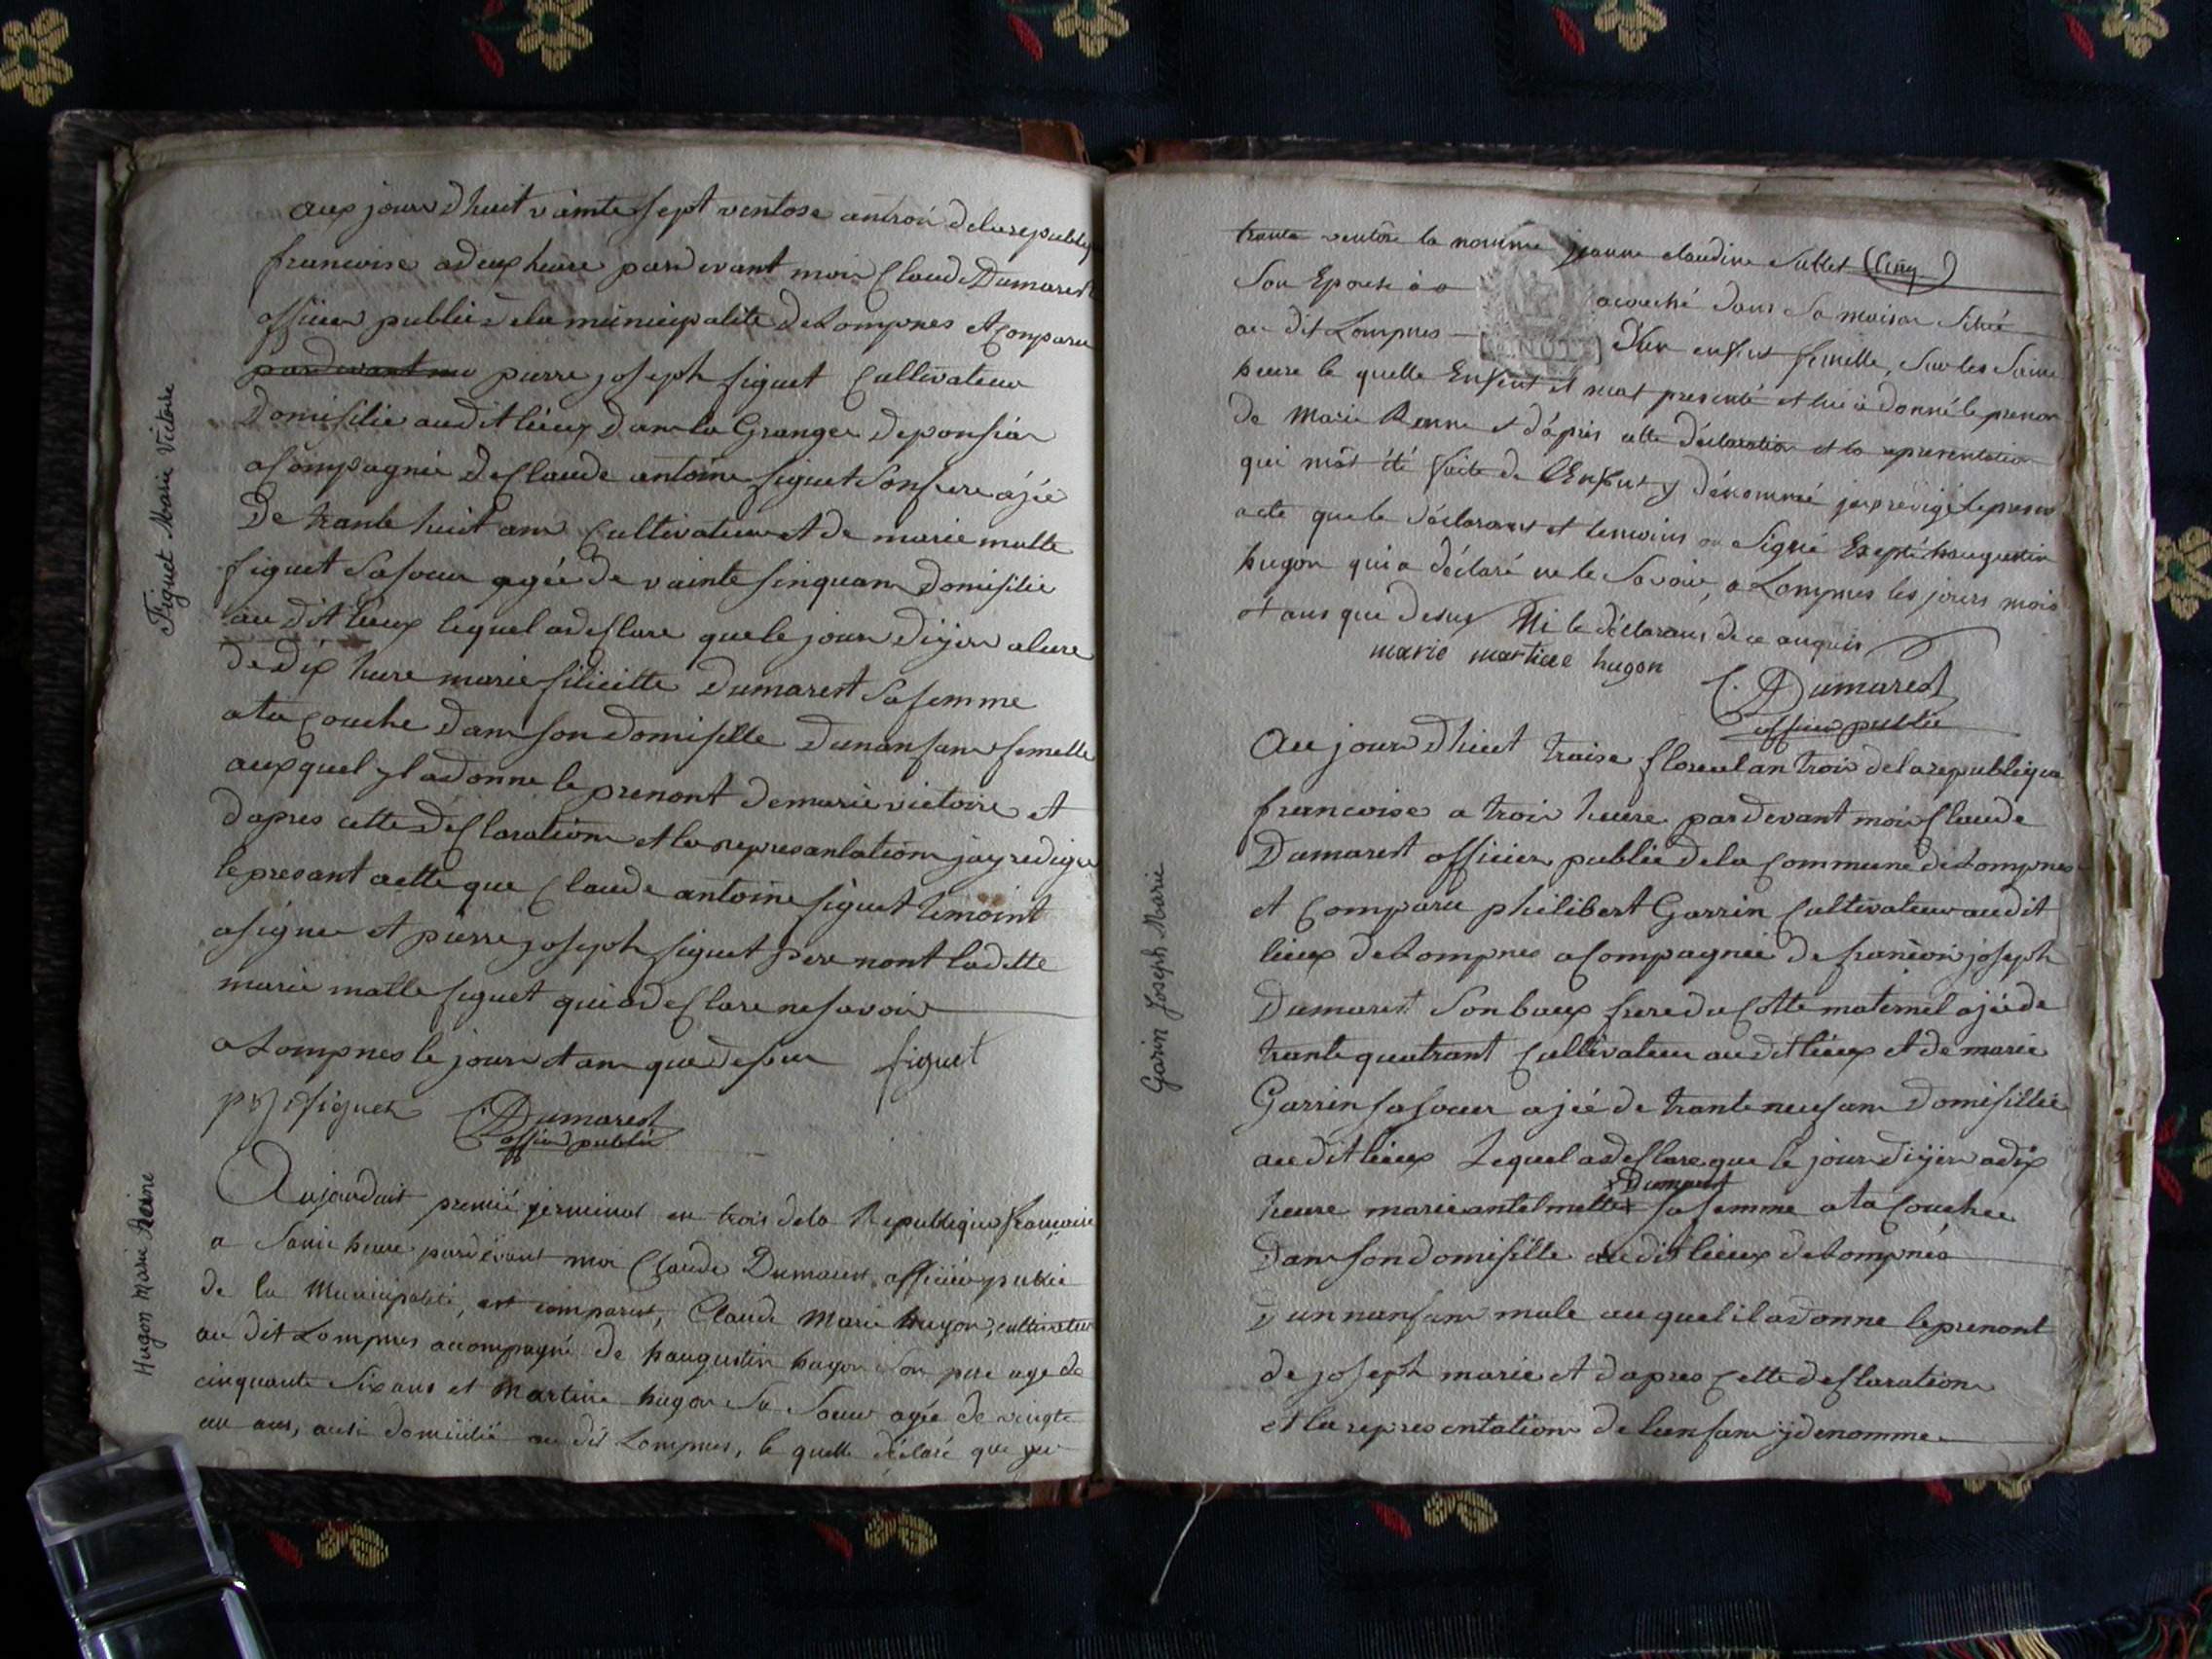 Figuet Marie Victoire
aux jourdhuit vainte sept ventose antroi delarepubliq
francoise adeux heure pardevant moi Claude Dumarest
officier public dela municipalite deLompnes et Comparu
pardevant mo pierre joseph figuet Cultivateur
Domisilie audit lieux Dans la Grange deponsiar
aCompagnie deClaude antoine figuet Son frere ajée
De trante huit ans Cultivateur et de marie matte
figuet Sa soeur agée de vainte sinquans Domisilie
au dit lieux lequel adesClare que le jour Diyer a lure
de dix hure marie filicitte Dumarest Sa femme
ata Couche Dans son Domisille Dunansans femelle
auxquel yl adonne le prenont demarie victoire et
dapres cette desClaration et la represantation jay redige
le presant actte que Claude antoine figuet temoint
asigner et pierre joseph figuet pere nont ladette
marie matte figuet qui adesClare ne savoir
a Lompnes le jour et ans que desur figuet
p j figuet C. Dumarest
officier public
Hugon Marie Reine
Aujourduit premié germinal en trois de la Republique francoise
a Saint heure pardevant moi Claude Dumarest officié public
de la Municipalité, est comparut, Claude Marie hugon, cultivateur
au dit Lompnes accompagné de haugustin hugon Son pere age de
cinquante Six ans et Martine hugon Sa Soeur agée de vingte
un ans, ausi domicilié au dit Lompnes, le quelle déclaré que
trante ventôse la nommé jeanne claudine Sublet (Cinq)
Son Epouse a a acouché dans Sa maison Situé
au dit Lompnes D'un enfant femelle, Sur les Saint
heure le quelle Enfant et mat presenté et lui a donné le prenon
de Marie Renne et d'apris cette déclaration et la representation
qui m'at été faite de l'Enfant y dénommé jay redigé le presen
acte que le déclarant et temoins on Signé Exepté haugustin
hugon qui a déclaré ne le Savoir, a Lompnes les jours mois
et ans que desus Ni le déclarans de ce anquis
marie martine hugon
C. Dumarest
officier public
Garin Joseph Marie
Au jourdhuit traise floreal an trois de la republique
francoise a trois heure pardevant moi Claude
Dumarest officier public de la Commune de Lompnes
et Comparu philibert Garrin Cultivateur audit
lieux de Lompnes aCompagnie de francoi joseph
Dumarest Son baux frere du Cotte maternel ajée de
trante quatrant Cultivateur au dit lieux et de marie
Garrin sa soeur ajée de trante neuf ans Domisillie
au dit lieux Lequel adesClare que le jour diyer adix
x Dumarest
heure marie antelmette x sa femme ata Couchee
Dans son domisille au dit lieux de Lompnes
D unnansans male au quel il adonne le prenont
de joseph marie et dapres Cette desClaration
et la representation de lansans y denomme